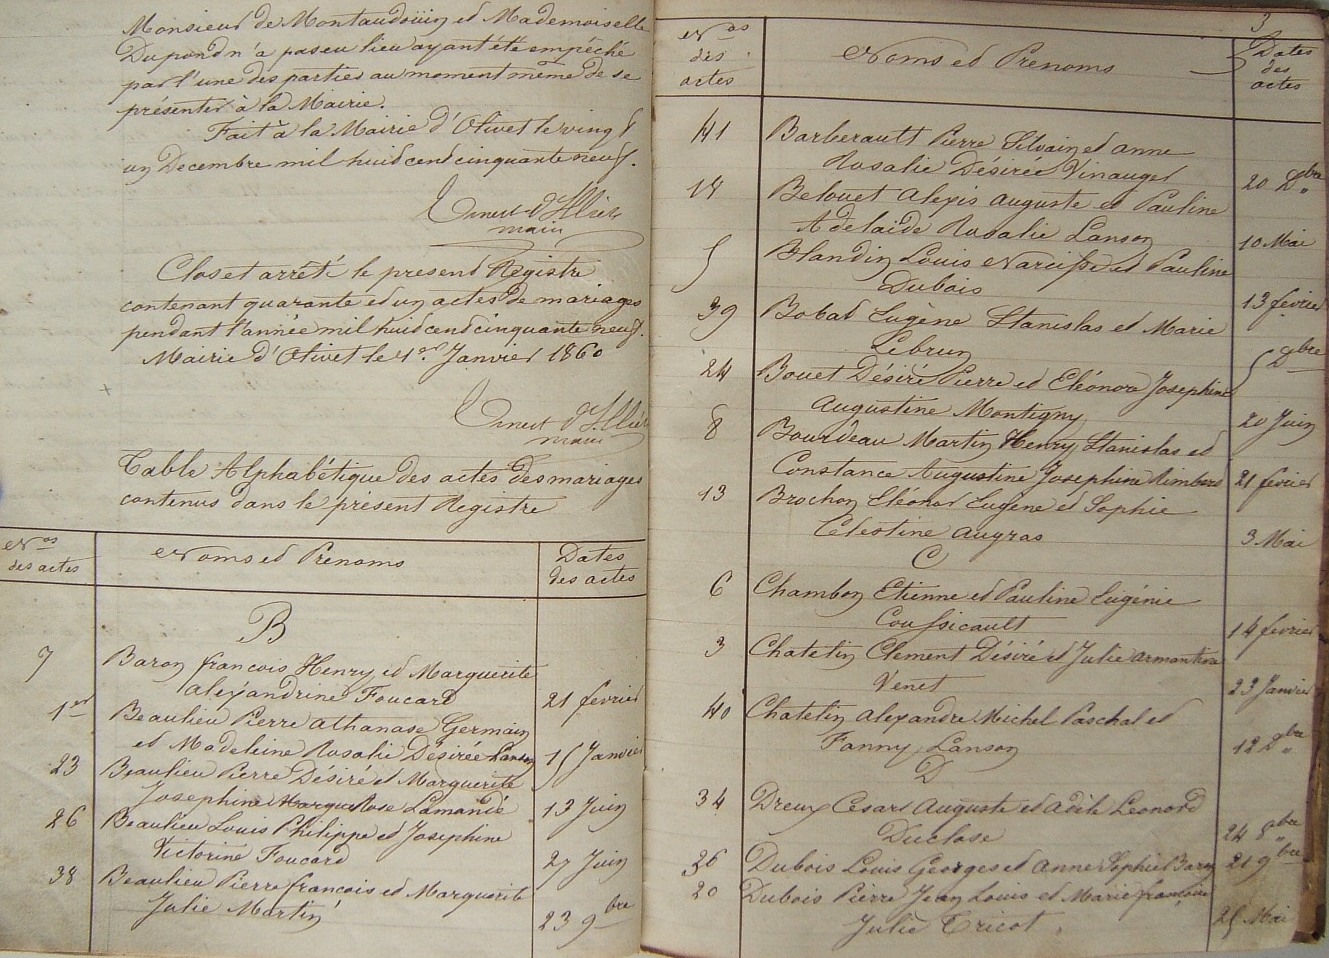 Monsieur de Montaudoüin et Mademoiselle
Dupond n'a pas eu lieu ayant été empêché
par l'une des parties au moment même de se
présenter à la Mairie.
Fait à la Mairie d'Olivet le vingt
un Decembre mil huit cent cinquante neuf.
Ernest d'Illiers
maire
Clos et arrêté le present Registre
contenant quarante et un actes de mariages
pendant l'année mil huit cent cinquante neuf.
Mairie d'Olivet le 1er Janvier 1860
Ernest d'Illiers
maire
Table Alphabétique des actes des mariages
contenus dans le présent Registre
Nos des actes
Noms et Prenoms
Dates des actes
B
7 Baron francois Henry et Marguerite
alexandrine Foucard 21 fevrier
1er Beaulieu Pierre athanase Germain
et Madeleine Rosalie Désirée Lanson 15 Janvier
23 Beaulieu Pierre Désiré et Marguerite
Josephine Rose Lamandé 13 Juin
26 Beaulieu Louis Philippe et Josephine
Victorine Foucard 27 Juin
38 Beaulieu Pierre francois et Marguerite
Julie Martin 23 9bre
3
Nos des actes
Noms et Prenoms
Dates des actes
41 Barberault Pierre Silvain et anne
Rosalie Désirée Vinauger 20 Dbre
18 Belouet Alexis auguste et Pauline
Adelaide Rosalie Lanson 10 Mai
5 Blandin Louis Narcisse et Pauline
Dubois 13 février
39 Bobat Eugène Stanislas et Marie
Lebrun 5 Dbre
24 Bouet Désiré Pierre et Eléonore Josephine
Augustine Montigny 20 Juin
8 Bourdeau Martin Henry Stanislas et
Constance Augustine Josephine Rimbert 21 février
13 Brochon Eléonor Eugène et Sophie
Célestine Augras 3 Mai
C
6 Chambon Etienne et Pauline Eugénie
Coussicault 14 fevrier
3 Chatelin Clement Désiré et Julie armantine
Venet 23 Janvier
40 Chatelin Alexandre Michel Paschal et
Fanny Lanson 12 Dbre
D
34 Dreux Cesard Auguste et Adèle Léonord
Duclose 24 8bre
36 Dubois Louis Georges et Anne Sophie Baron 21 9bre
20 Dubois Pierre Jean Louis et Marie françoise
Julie Tricot 25 Mai